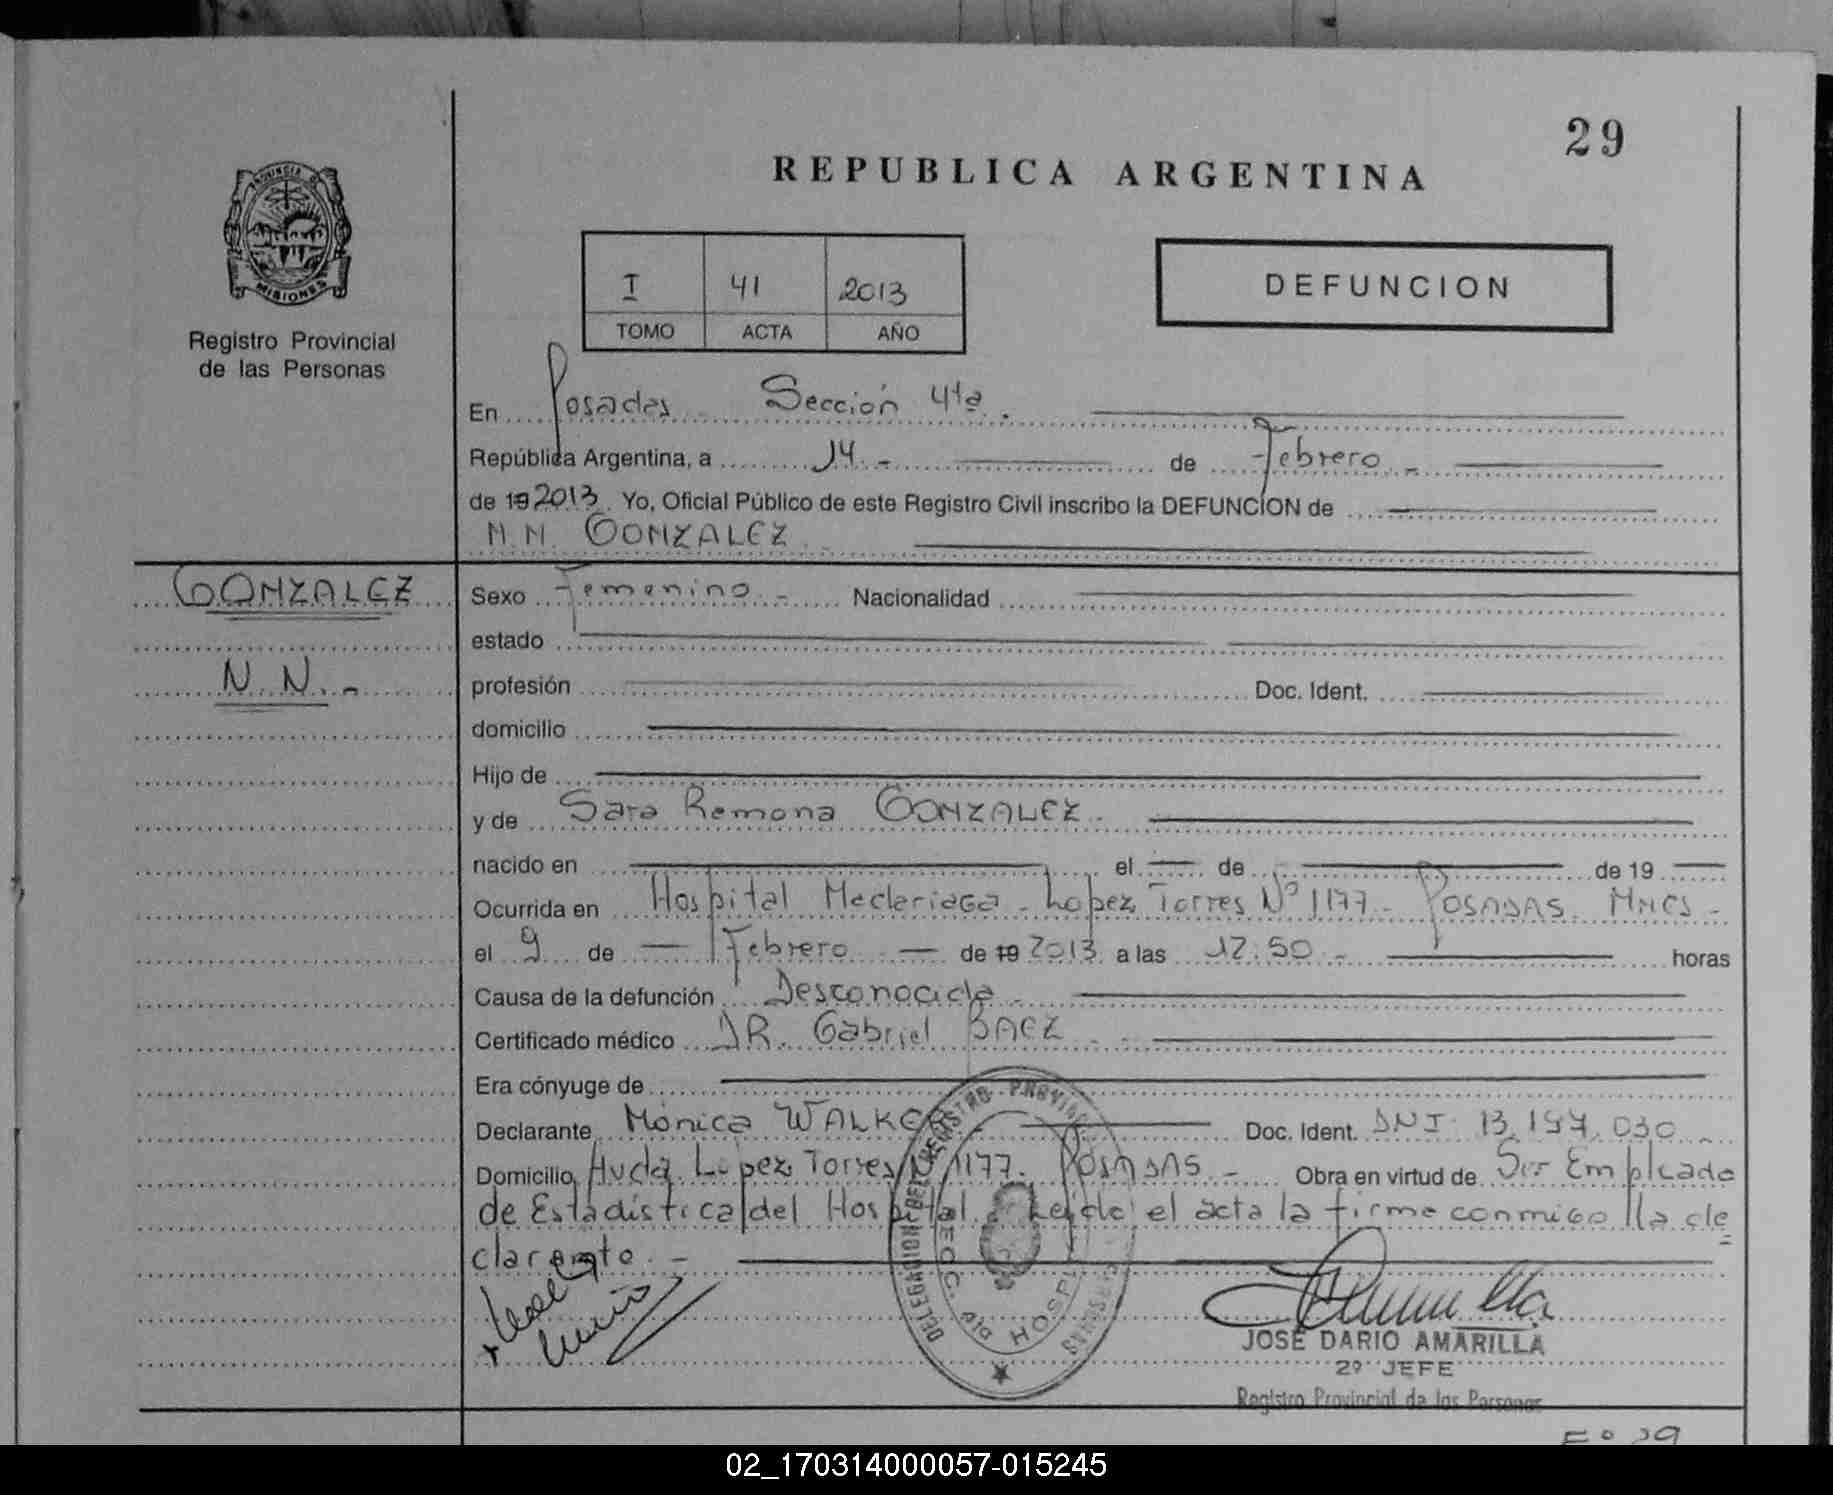 29
REPUBLICA ARGENTINA
PROVINCIA D
MISIONES
Registro Provincial
de las Personas
I 41 2013
TOMO ACTA AÑO
DEFUNCION
En Posadas Sección 4ta.
República Argentina, a 14.- de Febrero.-
de 19 2013. Yo, Oficial Público de este Registro Civil inscribo la DEFUNCION de
N.N. GONZALEZ.
GONZALEZ
N.N.-
Sexo Femenino.- Nacionalidad
estado
profesión Doc. Ident.
domicilio
Hijo de
y de Sara Ramona GONZALEZ.
nacido en el de de 19
Ocurrida en Hospital Madariaga - Lopez Torres Nº 1177 - POSADAS. Mnes -
el 9 de Febrero de 19 2013 a las 12:50 - horas
Causa de la defunción Desconocida -
Certificado médico DR. Gabriel BAEZ
Era cónyuge de
Declarante Mónica WALKER Doc. Ident. DNI 13.197.030
Domicilio Avda. Lopez Torres Nº 1177. POSADAS - Obra en virtud de Ser Empleada
de Estadística del Hospital. Leída el acta la firma conmigo lla de
clarante. -
DELEGACION DEL REGISTRO PROVINC
SECC. 4ta HOSP
JOSE DARIO AMARILLA
2º JEFE
Registro Provincial de las Personas
Fº 29
02_170314000057-015245